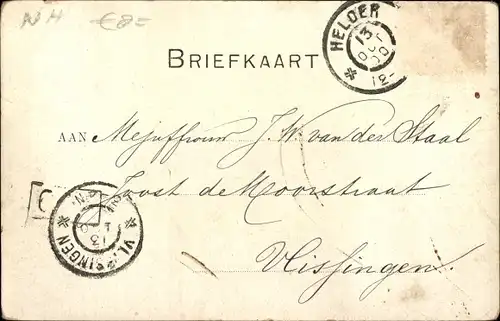 NH €8=
HELDER 13 OCT 00 12-
BRIEFKAART
AAN Mejuffrouw J. W. van der Staal
Joost de Moorstraat
Vlissingen.
VLISSINGEN 13